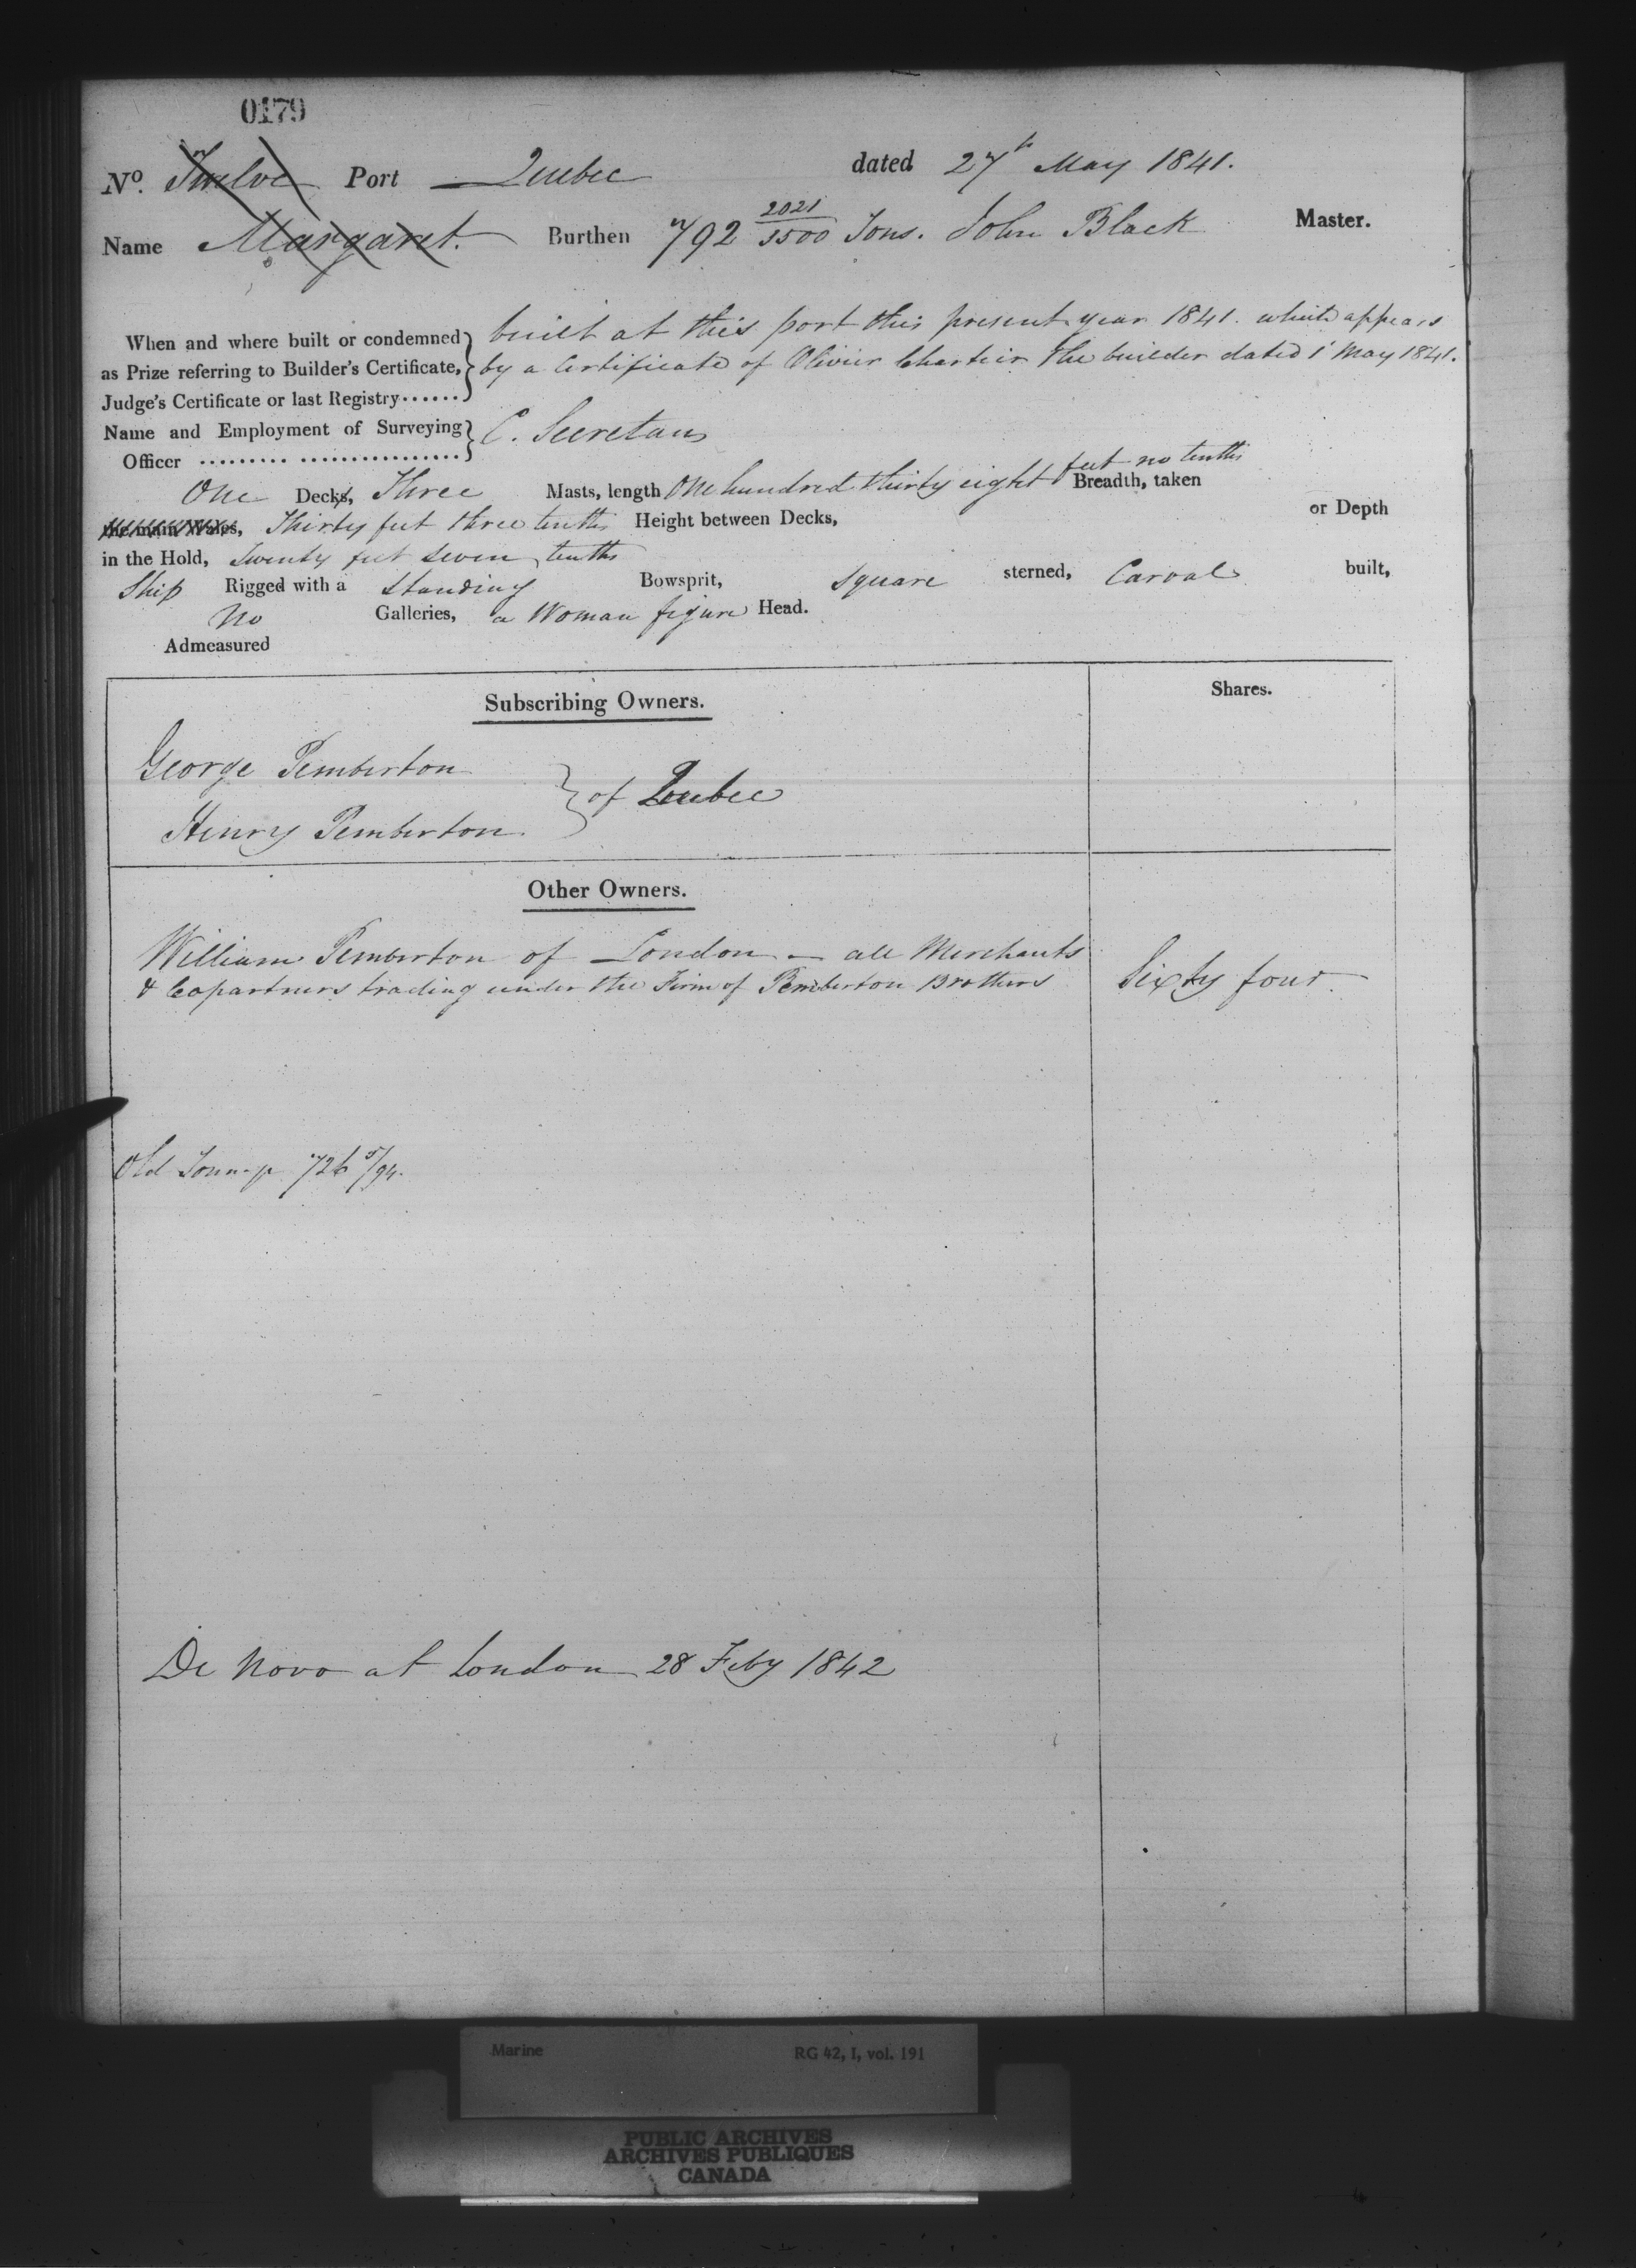 0179
No. Twelve Port Quebec dated 27th May 1841.
Name Margaret. Burthen 792 2021/3500 Tons. John Black Master.
When and where built or condemned as Prize referring to Builder's Certificate, Judge's Certificate or last Registry......
built at this port this present year 1841. which appears
by a Certificate of Olivier Chartier the builder dated 1st May 1841.
Name and Employment of Surveying Officer ......... ................. C. Secretan
One Decks, Three Masts, length One hundred thirty eight feet no tenths Breadth, taken
the main Wales, Thirty feet three tenths Height between Decks, or Depth
in the Hold, Twenty feet seven tenths
Ship Rigged with a Standing Bowsprit, Square sterned, Carval built,
No Galleries, a Woman figure Head.
Admeasured
Subscribing Owners. Shares.
George Pemberton
} of Quebec
Henry Pemberton
Other Owners.
William Pemberton of London - all Merchants
& Copartners trading under the Firm of Pemberton Brothers Sixty four
Old 726 5/94.
De Novo at London 28 Feby 1842
Marine RG 42, I, vol. 191
PUBLIC ARCHIVES
ARCHIVES PUBLIQUES
CANADA